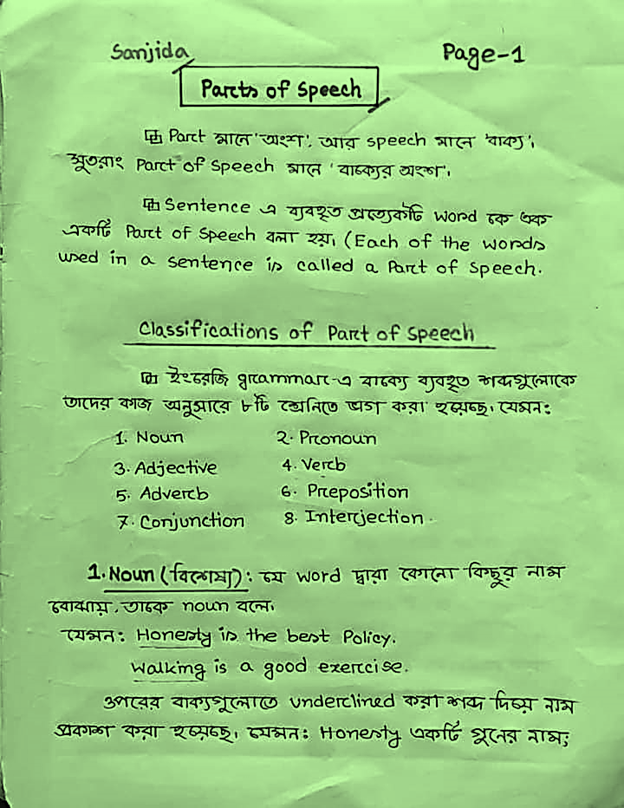 Sanjida
Page-1
Parts of Speech
Part মানে 'অংশ', আর speech মানে 'বাক্য'।
সুতরাং Part of Speech মানে 'বাক্যের অংশ'।
Sentence এ ব্যবহৃত প্রত্যেকটি word কে এক
একটি Part of Speech বলা হয়। (Each of the words
used in a sentence is called a Part of Speech.
Classifications of Part of Speech
ইংরেজি grammar-এ বাক্যে ব্যবহৃত শব্দগুলোকে
তাদের কাজ অনুসারে ৮টি শ্রেনিতে ভাগ করা হয়েছে। যেমন:
1. Noun 2. Pronoun
3. Adjective 4. Verb
5. Adverb 6. Preposition
7. Conjunction 8. Interjection.
1. Noun (বিশেষ্য): যে word দ্বারা কোনো কিছুর নাম
বোঝায়, তাকে noun বলে।
যেমন: Honesty is the best Policy.
Walking is a good exercise.
ওপরের বাক্যগুলোতে underlined করা শব্দ দিয়ে নাম
প্রকাশ করা হয়েছে। যেমন: Honesty একটি গুনের নাম;